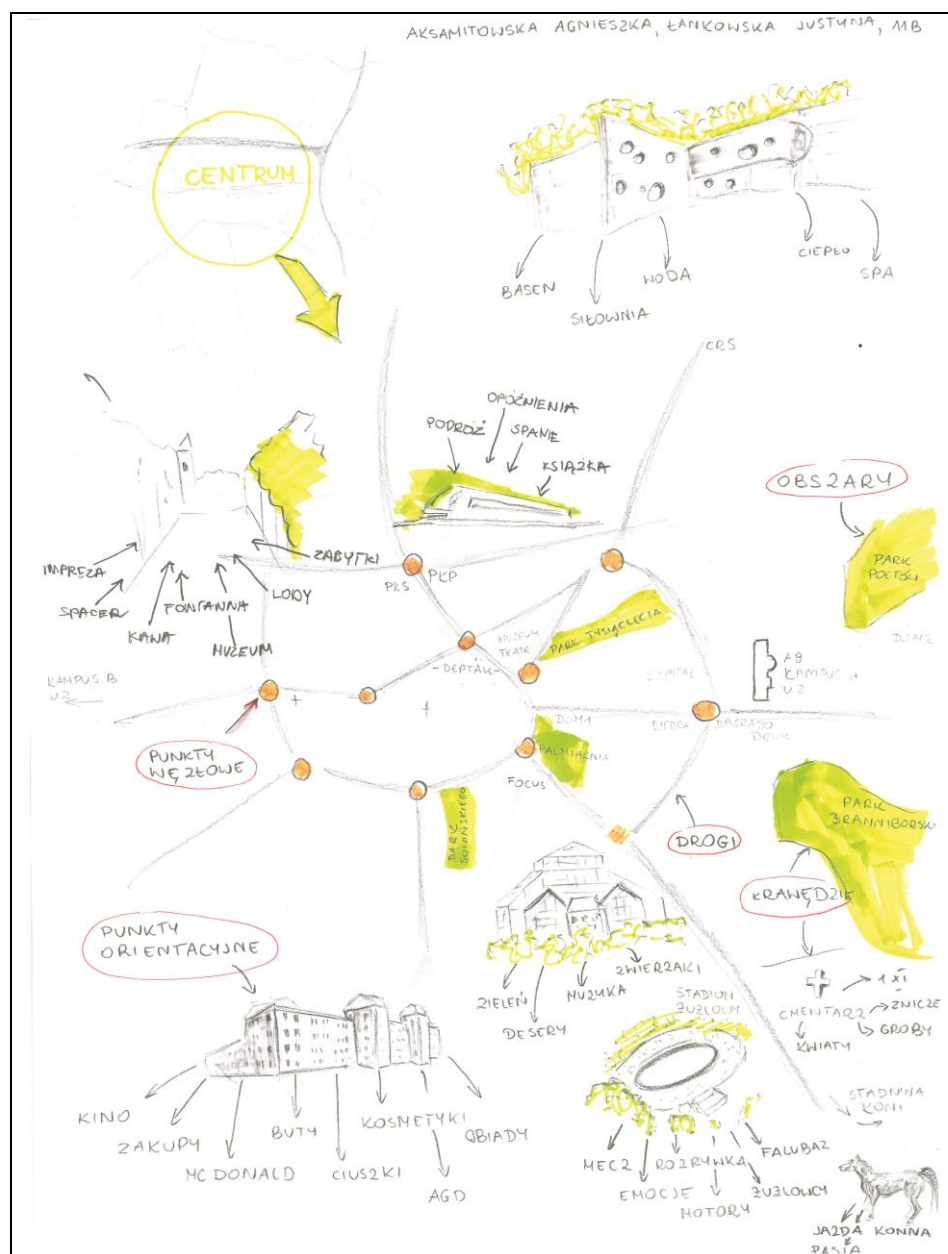 AKSAMITOWSKA AGNIESZKA, ŁANKOWSKA JUSTYNA, 11B
CENTRUM
BASEN
SIŁOWNIA
WODA
CIEPŁO
SPA
CRS
OPÓŹNIENIA
PODRÓŻ
SPANIE
KSIĄŻKA
OBSZARY
PARK
POETÓW
DOM2
IMPREZA
SPACER
KAWA
FONTANNA
MUZEUM
LODY
ZABYTKI
PKS
PKP
MUZEUM
TEATR
PARK TYSIĄCLECIA
-DEPTAK-
SZPITAL
A8
KAMPUS A
UZ
KAMPUS B
UZ
DOM1
PALMIARNIA
FOCUS
PUNKTY
WĘZŁOWE
PARK
DROGI
PARK
KRAWĘDZIE
PUNKTY
ORIENTACYJNE
ZIELEŃ
DESERY
MUZYKA
ZWIERZAKI
STADION
ŻUŻLOWY
CMENTARZ
1 XI
ZNICZE
GROBY
KWIATY
STADNINA
KONI
KINO
ZAKUPY
MCDONALD
BUTY
CIUSZKI
KOSMETYKI
AGD
OBIADY
MECZ
EMOCJE
ROZRYWKA
MOTORY
ŻUŻLOWCY
FALUBAZ
JAZDA KONNA
PASJA